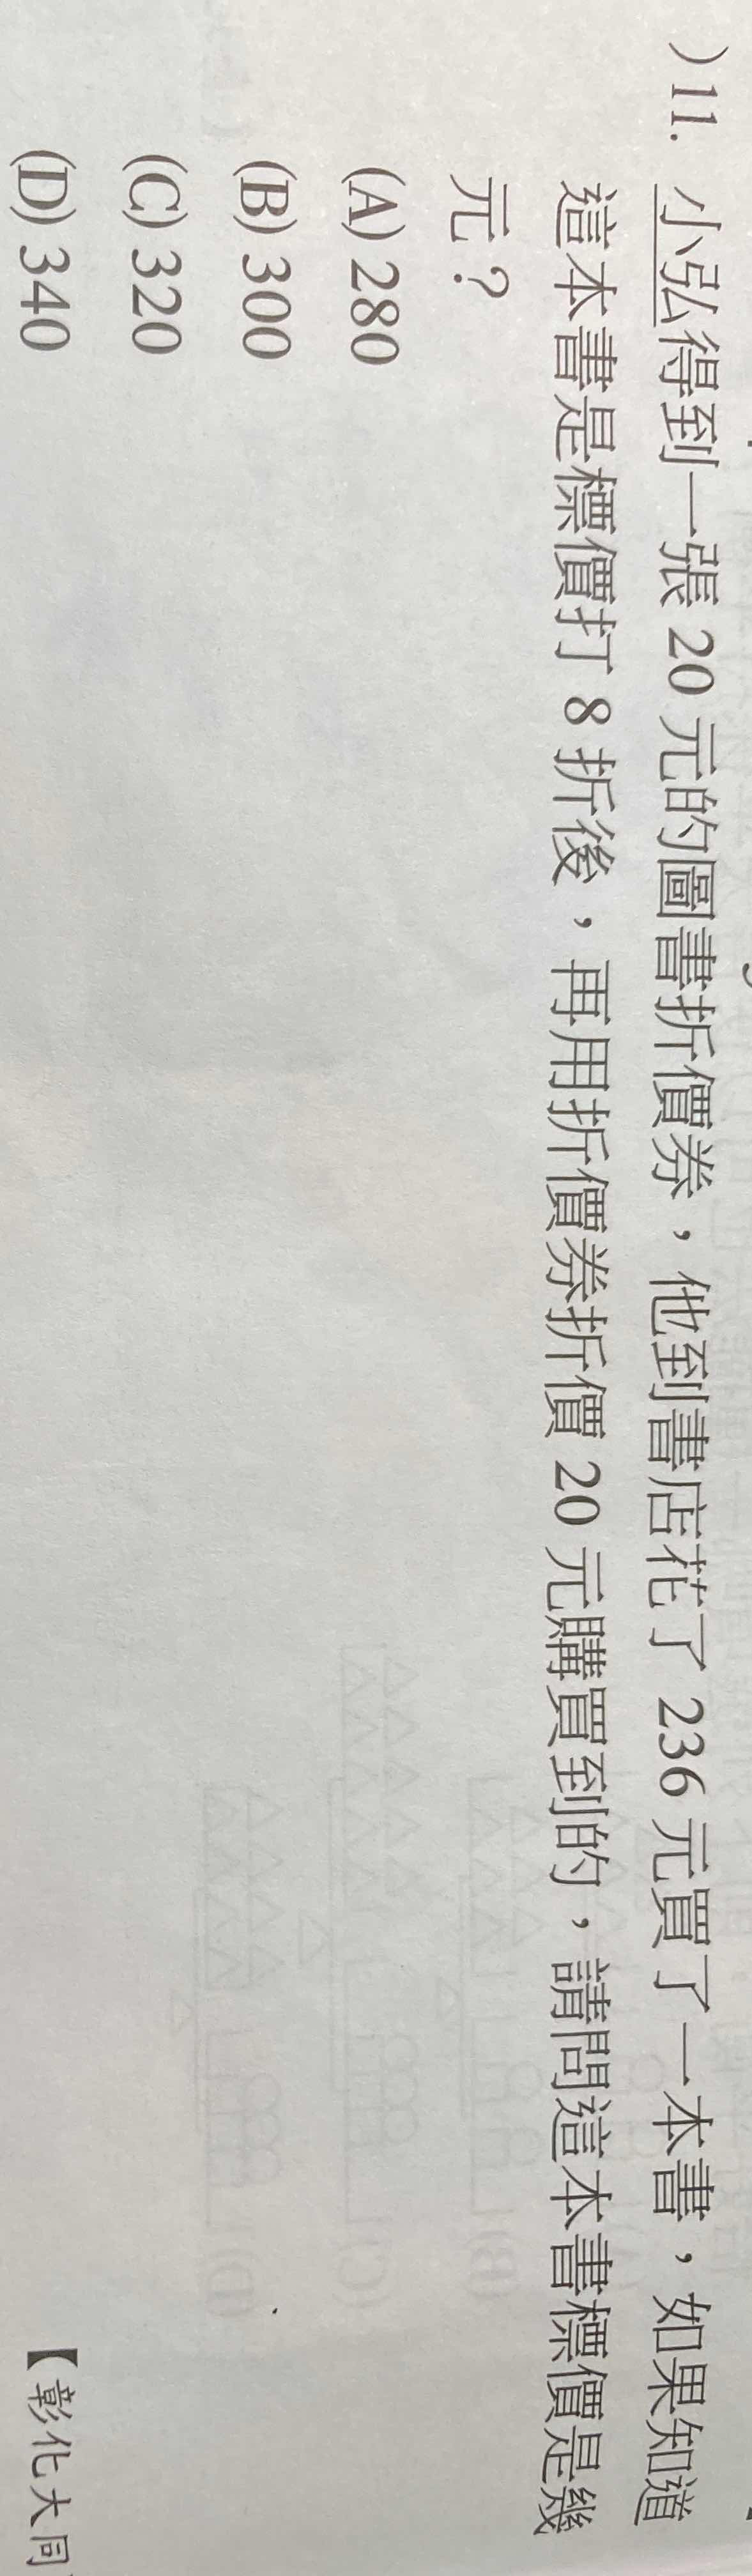 )11. 小弘得到一張 20 元的圖書折價券，他到書店花了 236 元買了一本書，如果知道
這本書是標價打 8 折後，再用折價券折價 20 元購買到的，請問這本書標價是幾
元？
(A) 280
(B) 300
(C) 320
(D) 340
【彰化大同